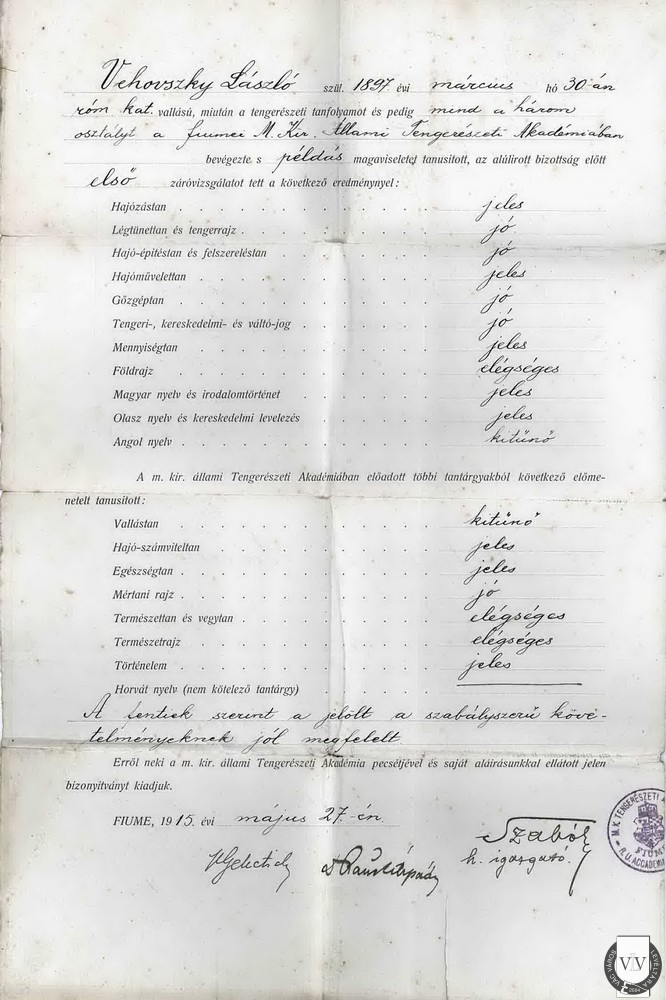 Vehovszky László szül. 1897. évi március hó 30-án
róm kat. vallású, miután a tengerészeti tanfolyamot és pedig mind a három
osztályt a fiumei M. Kir. Állami Tengerészeti Akadémiában
bevégezte s példás magaviseletet tanusított, az alúlirott bizottság előtt
első záróvizsgálatot tett a következő eredménynyel:
Hajózástan jeles
Légtünettan és tengerrajz jó
Hajó-épitéstan és felszereléstan jó
Hajóművelettan jeles
Gőzgéptan jó
Tengeri-, kereskedelmi- és váltó-jog jó
Mennyiségtan jeles
Földrajz elégséges
Magyar nyelv és irodalomtörténet jeles
Olasz nyelv és kereskedelmi levelezés jeles
Angol nyelv kitünő
A m. kir. állami Tengerészeti Akadémiában előadott többi tantárgyakból következő előme-
netelt tanusitott:
Vallástan kitünő
Hajó-számviteltan jeles
Egészségtan jeles
Mértani rajz jó
Természettan és vegytan elégséges
Természetrajz elégséges
Történelem jeles
Horvát nyelv (nem kötelező tantárgy)
A fentiek szerint a jelölt a szabályszerű köve-
telményeknek jól megfelelt.
Erről neki a m. kir. állami Tengerészeti Akadémia pecsétjével és saját aláirásunkkal ellátott jelen
bizonyitványt kiadjuk.
FIUME, 1915. évi május 27-én.
Szabó
h. igazgató.
M. K. TENGERÉSZETI
FIUME
R. U. ACCADEMIA
VÁC VÁROS LEVÉLTÁRA
VLV